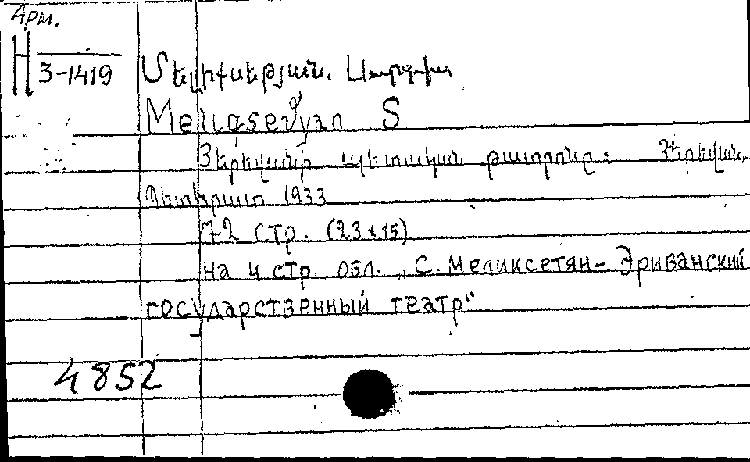 Арм.
H
3-1419 Մելիքսեթյան, Սարգիս
Meliqsetyan S
Յերեվանի պետական թատրոնը: Յերեվան,
Պետհրատ 1933
72 стр. (23x15)
на 4 стр. обл. „С. Меликсетян- Эриванский
государственный театр"
4852